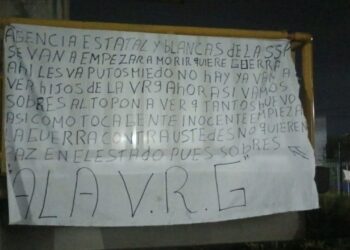 AGENCIA ESTATAL Y BLANCAS DE LA SSP
SE VAN A EMPEZAR A MORIR QUIERE GUERRA
AHI LES VA PUTOS MIEDO NO HAY YA VAN A
VER HIJOS DE LA VR9 AHORA SI VAMOS
SOBRES AL TOPON A VER 9 TANTOS HUEVO
ASI COMO TOCA GENTE INOCENTE EMPIEZA
LA GUERRA CONTRA USTEDES NO QUIEREN
PAZ EN EL ESTADO PUES SOBRES
"A LA V.R.G"